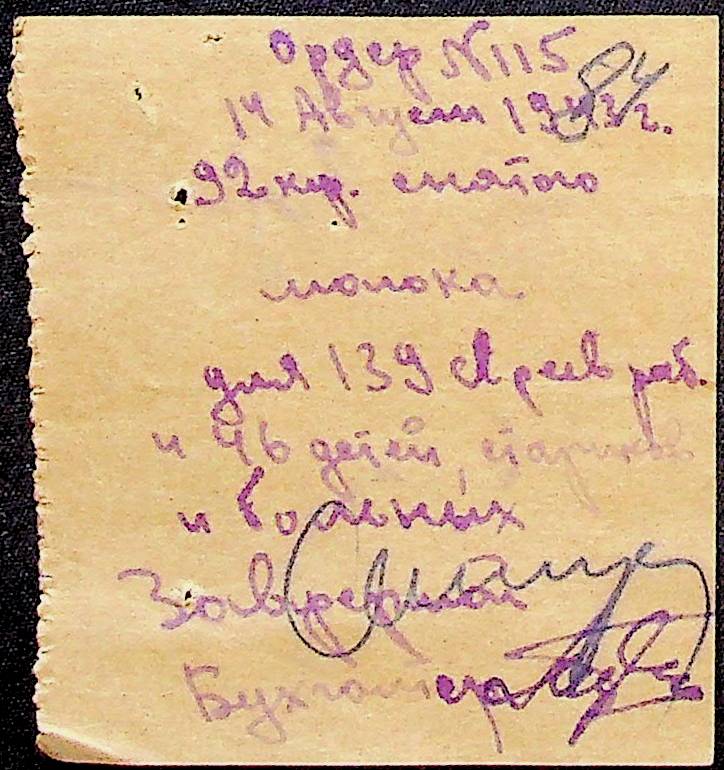 Ордер №115
84
14 Август 1943 г.
92 кгр. снятого
молока
для 139 евреев раб.
и 46 детей, стариков
и больных
Зав
Бухгалтер